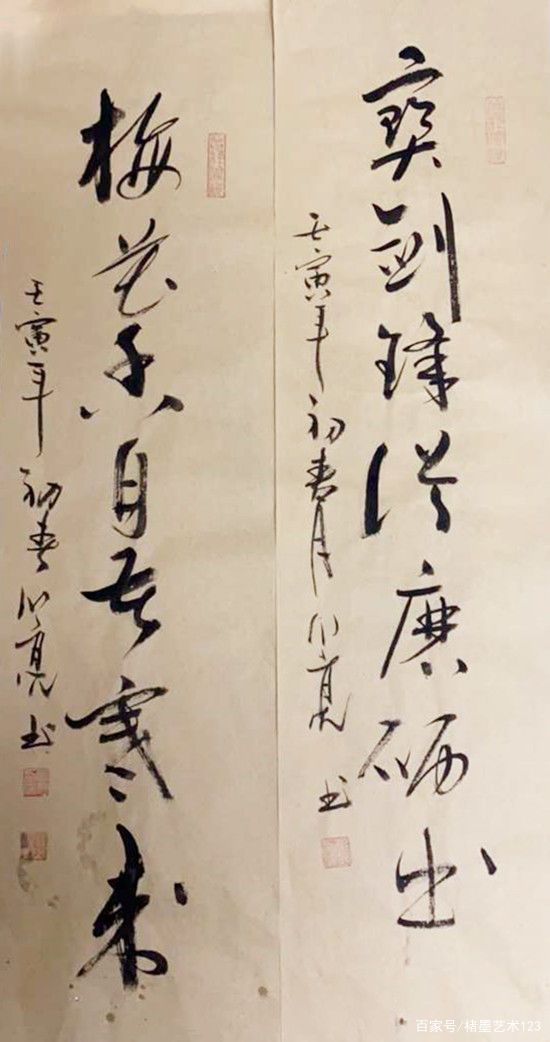 寶劍鋒從磨砺出
壬寅年初春月小亮书
梅花香自苦寒来
壬寅年初春小亮书
百家号/楮墨艺术123